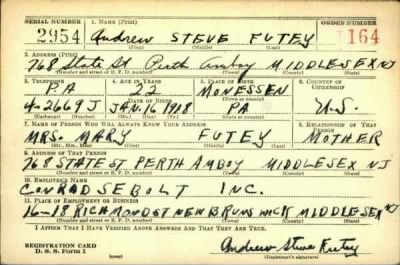 SERIAL NUMBER 1. NAME (Print) ORDER NUMBER
2954 Andrew STEVE FUTEY 1164
(First) (Middle) (Last)
2. ADDRESS (Print)
768 State St Perth Amboy MIDDLESEX NJ
(Number and street or R. F. D. number) (Town) (County) (State)
3. TELEPHONE 4. AGE IN YEARS 5. PLACE OF BIRTH 6. COUNTRY OF CITIZENSHIP
P.A 22 MONESSEN
DATE OF BIRTH (Town or county)
4-2669J JAN. 16 1918 PA U.S.
(Exchange) (Number) (Mo.) (Day) (Yr.) (State or country)
7. NAME OF PERSON WHO WILL ALWAYS KNOW YOUR ADDRESS 8. RELATIONSHIP OF THAT PERSON
MRS. MARY FUTEY MOTHER
(Mr., Mrs., Miss) (First) (Middle) (Last)
9. ADDRESS OF THAT PERSON
768 STATE ST PERTH AMBOY MIDDLESEX NJ
(Number and street or R. F. D. number) (Town) (County) (State)
10. EMPLOYER'S NAME
CONRAD SEBOLT INC.
11. PLACE OF EMPLOYMENT OR BUSINESS
16-18 RICHMOND ST NEW BRUNSWICK MIDDLESEX NJ
(Number and street or R. F. D. number) (Town) (County) (State)
I AFFIRM THAT I HAVE VERIFIED ABOVE ANSWERS AND THAT THEY ARE TRUE.
REGISTRATION CARD
D. S. S. Form 1 Andrew Steve Futey
(Registrant's signature)